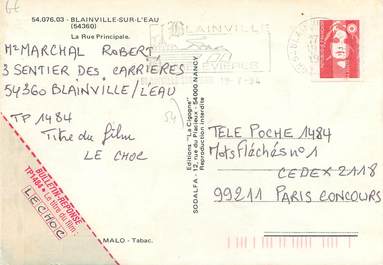 54.076.03 - BLAINVILLE-SUR-L'EAU
(54360)
La Rue Principale.
BLAINVILLE
MR MARCHAL ROBERT
3 SENTIER DES CARRIÈRES
54360 BLAINVILLE/L'EAU
TP 1484
Titre du film
LE CHOC
54
BULLETIN-RÉPONSE
TP1484 • Le titre du film :
LE CHOC
MALO - Tabac.
Editions "La Cigogne"
SODALFA - 12, rue du Plateau - 54000 NANCY
Reproduction interdite
TELE POCHE 1484
Mots Fléchés n°1
CEDEX 2118
99211 PARIS CONCOURS